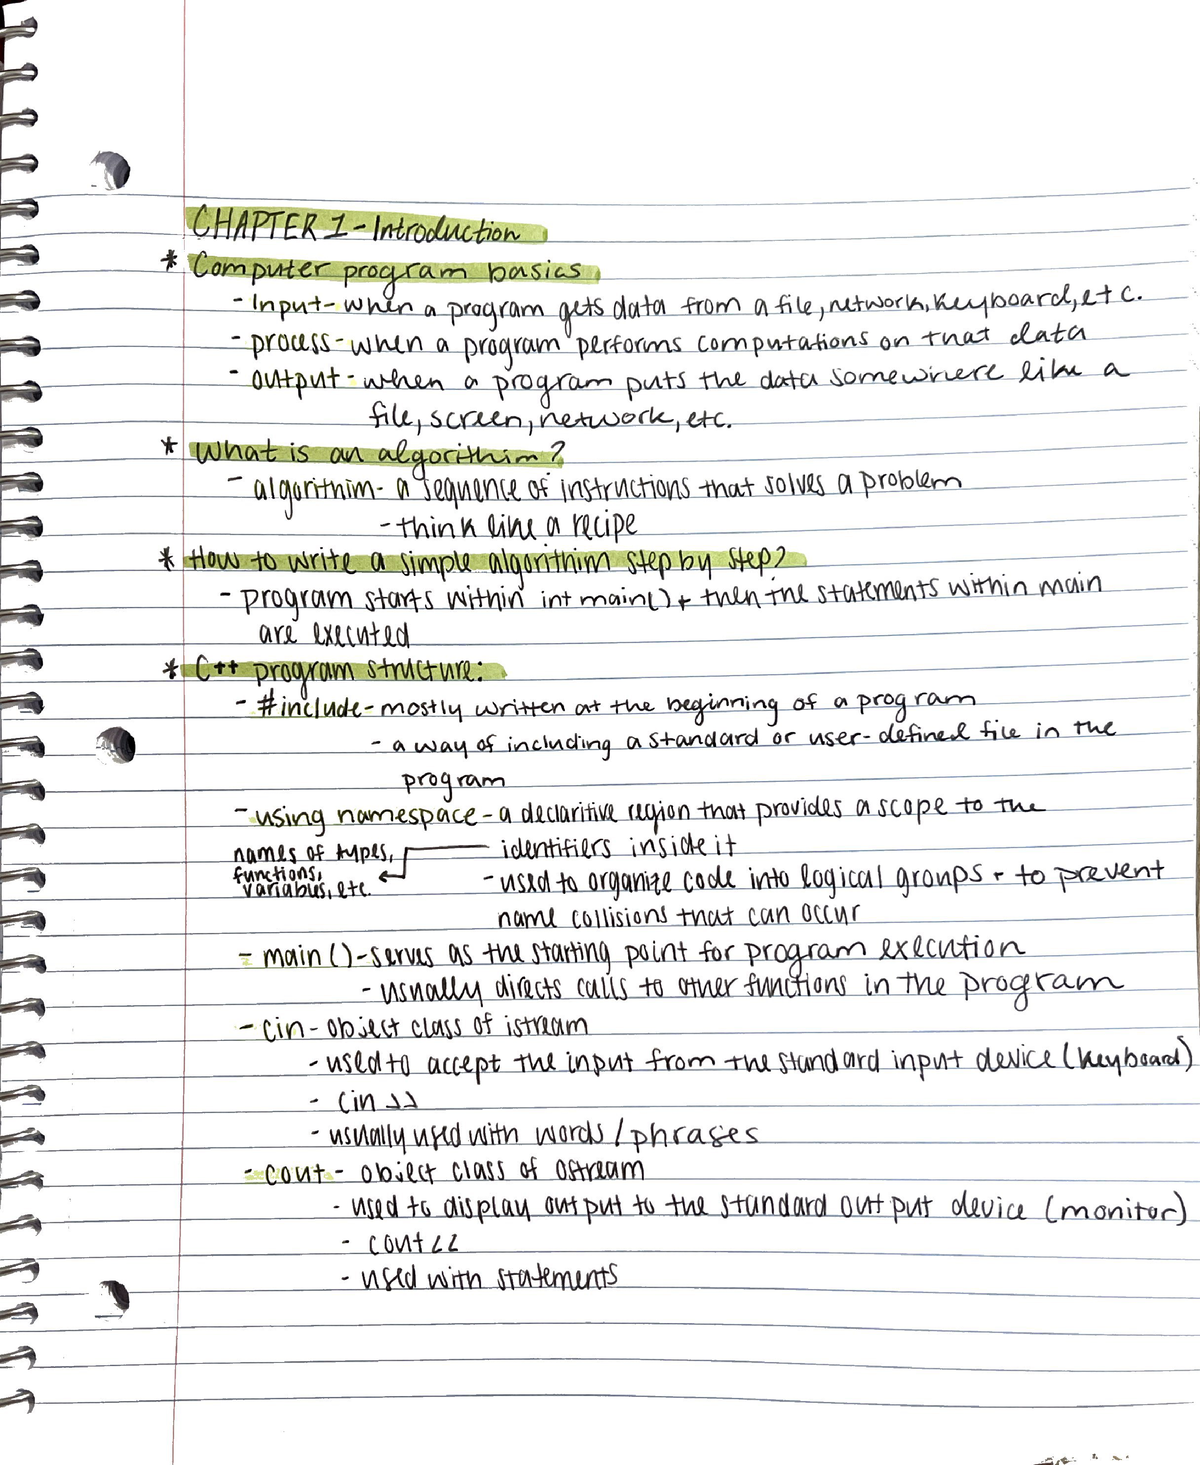 CHAPTER 1 - Introduction
* Computer program basics
- Input - when a program gets data from a file, network, keyboard, etc.
- process - when a program performs computations on that data
- output - when a program puts the data somewhere like a
file, screen, network, etc.
* What is an algorithim?
- algorithim - a sequence of instructions that solves a problem
- think like a recipe
* How to write a simple algorithim step by step?
- program starts within int main() + then the statements within main
are executed
* C++ program structure:
- #include - mostly written at the beginning of a program
- a way of including a standard or user-defined file in the
program
- using namespace - a declaritive region that provides a scope to the
identifiers inside it
names of types,
functions,
variables, etc.
- used to organize code into logical groups + to prevent
name collisions that can occur
- main () - serves as the starting point for program execution
- usually directs calls to other functions in the program
- cin - object class of istream
- used to accept the input from the standard input device (keyboard)
- cin >>
- usually used with words / phrases
- cout - object class of ostream
- used to display output to the standard output device (monitor)
- cout <<
- used with statements